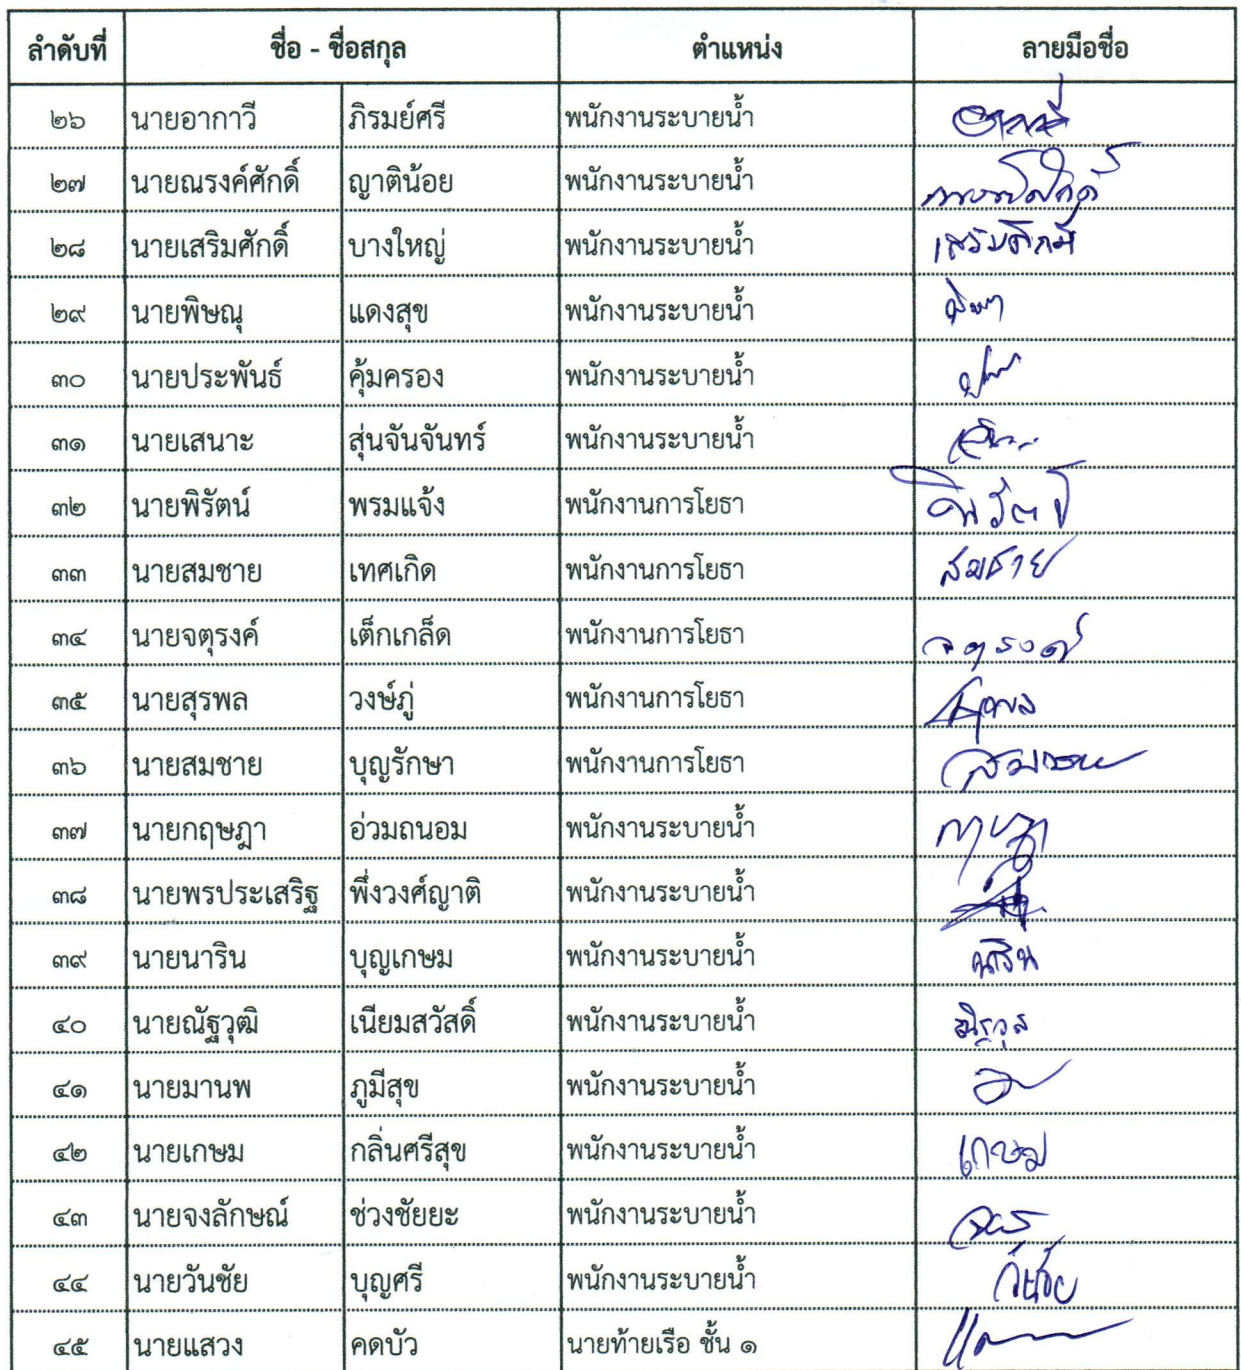 ลำดับที่ ชื่อ - ชื่อสกุล ตำแหน่ง ลายมือชื่อ
๒๖ นายอากาวี ภิรมย์ศรี พนักงานระบายน้ำ
๒๗ นายณรงค์ศักดิ์ ญาติน้อย พนักงานระบายน้ำ ณรงค์ศักดิ์
๒๘ นายเสริมศักดิ์ บางใหญ่ พนักงานระบายน้ำ เสริมศักดิ์
๒๙ นายพิษณุ แดงสุข พนักงานระบายน้ำ
๓๐ นายประพันธ์ คุ้มครอง พนักงานระบายน้ำ
๓๑ นายเสนาะ สุ่นจันจันทร์ พนักงานระบายน้ำ
๓๒ นายพิรัตน์ พรมแจ้ง พนักงานการโยธา พิรัตน์
๓๓ นายสมชาย เทศเกิด พนักงานการโยธา สมชาย
๓๔ นายจตุรงค์ เต็กเกล็ด พนักงานการโยธา จตุรงค์
๓๕ นายสุรพล วงษ์ภู่ พนักงานการโยธา สุรพล
๓๖ นายสมชาย บุญรักษา พนักงานการโยธา สมชาย
๓๗ นายกฤษฎา อ่วมถนอม พนักงานระบายน้ำ กฤษฎา
๓๘ นายพรประเสริฐ พึ่งวงศ์ญาติ พนักงานระบายน้ำ
๓๙ นายนาริน บุญเกษม พนักงานระบายน้ำ นาริน
๔๐ นายณัฐวุฒิ เนียมสวัสดิ์ พนักงานระบายน้ำ
๔๑ นายมานพ ภูมีสุข พนักงานระบายน้ำ
๔๒ นายเกษม กลิ่นศรีสุข พนักงานระบายน้ำ เกษม
๔๓ นายจงลักษณ์ ช่วงชัยยะ พนักงานระบายน้ำ
๔๔ นายวันชัย บุญศรี พนักงานระบายน้ำ วันชัย
๔๕ นายแสวง คดบัว นายท้ายเรือ ชั้น ๑